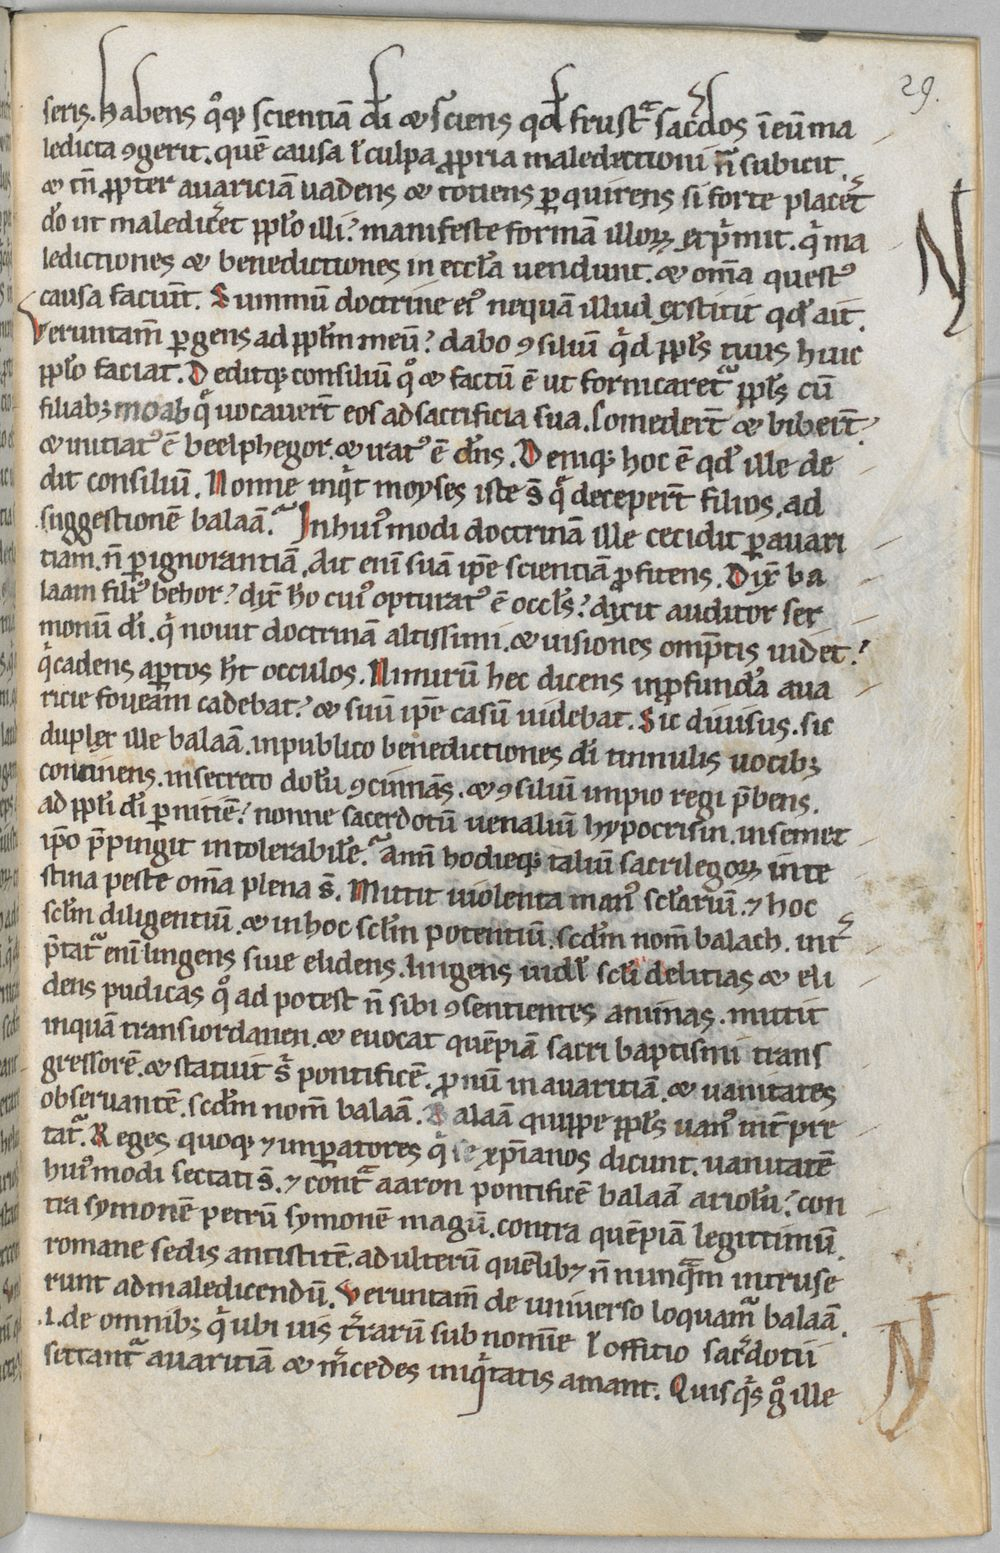 29.
seris. habens q̊q; scientiā d̄i & sciens qđ frustᵃ sacdos ī eū ma
ledicta ꝯgerit. quē causa ł culpa ꝓpria maledictioni n̄ subicit.
& tn̄ ꝓpter auariciā uadens & totiens ꝑquirens si forte placet
dō ut malediceret pplo illi? manifeste formā illoꝝ exp̄mit. q̄ ma
ledictiones & benedictiones in eccla uendunt. & om̄a questꝰ
causa faciūt. Summū doctrine eiꝰ nequā illud extitit qđ ait.
Veruntam̄ ꝑgens ad pplm meū? dabo ꝯsiliū qͥd ppls tuus huic
pplo faciat. Deditq; consiliū q̊ & factū ē ut fornicaretᷣ ppls cū
filiab; moab qͥ uocauerт̄ eos ad sacrificia sua. Comederт̄ & biberт̄?
& initiatꝰ ē beelphegor. & iratꝰ ē dn̄s. Deniq; hoc ē qđ ille de
dit consiliū. Nonne inqͥt moyses iste s̄ q̄ deceperт̄ filios, ad
suggestionē balaā? In huiꝰmodi doctrinā ille cecidit ꝑ auari
tiam. n̄ ꝑ ignorantiā. Ait eni suā ipse scientiā ꝓfitens. Dix̄ ba
laam filiꝰ behor? dix̄ ho cuiꝰ opturatꝰ ē occls? dixit auditor ser
monū di. qͥ nouit doctrinā altissimi. & uisiones omp̄tis uidet?
qͥ cadens aꝑtos ht occulos. Nimirū hec dicens in ꝓfundā aua
ricie foueam cadebat? & suū ipē casū uidebat. Sic diuisus. sic
duplex ille balaā. in publico benedictiones di tinnulis uocib;
continens. in secreto dolū ꝯcinnās. & ꝯsiliū impio regi p̄bens.
ad ppli di ꝑnitiē? nonne sacerdotū uenaliū hypocrisin. in semet
ipo p̄pingit intolerabile? Am̄ hodieq; taliū sacrilegoꝝ inte
stina peste om̄a plena s̄. Mittit uiolenta manꝰ sclariū. ⁊ hoc
sclm diligentiū. & in hoc sclm potentiū. scdm nom̄ balach. int̄
p̄tatᷣ eni lingens siue elidens. lingens uidł scli delitias & eli
dens pudicas q̊ ad potest n̄ sibi ꝯsentientes animas. mittit
inquā transiordanen. & euocat quēpiā sacri baptismi trans
gressorē. & statuit s̄ pontificē. ꝓnū in auaritiā. & uanitates
obseruantē. scdm nom̄ balaā. Balaā quippe ppls uanꝰ int̄pre
tatᷣ. Reges quoq; ⁊ imꝑatores qͥ se xp̄ianos dicunt. uanitatē
huiꝰmodi sectati s̄. ⁊ contᵃ aaron pontificē balaā ariolū? con
tra symonē petrū symonē magū. contra quēpiā legittimū
romane sedis antistitē. adulterū quēlib; n̄ nunqᵃm intruse
runt ad maledicendū. Veruntam̄ de uniuerso loquamᷣ balaā.
.i. de omnib; qͥ ubi uis tr̄rarū sub nomine ł offitio sacdotii
sectantᷣ auaritiā & m̄cedes iniqͥtatis amant. Quisqͥs g̊ ille
N
N